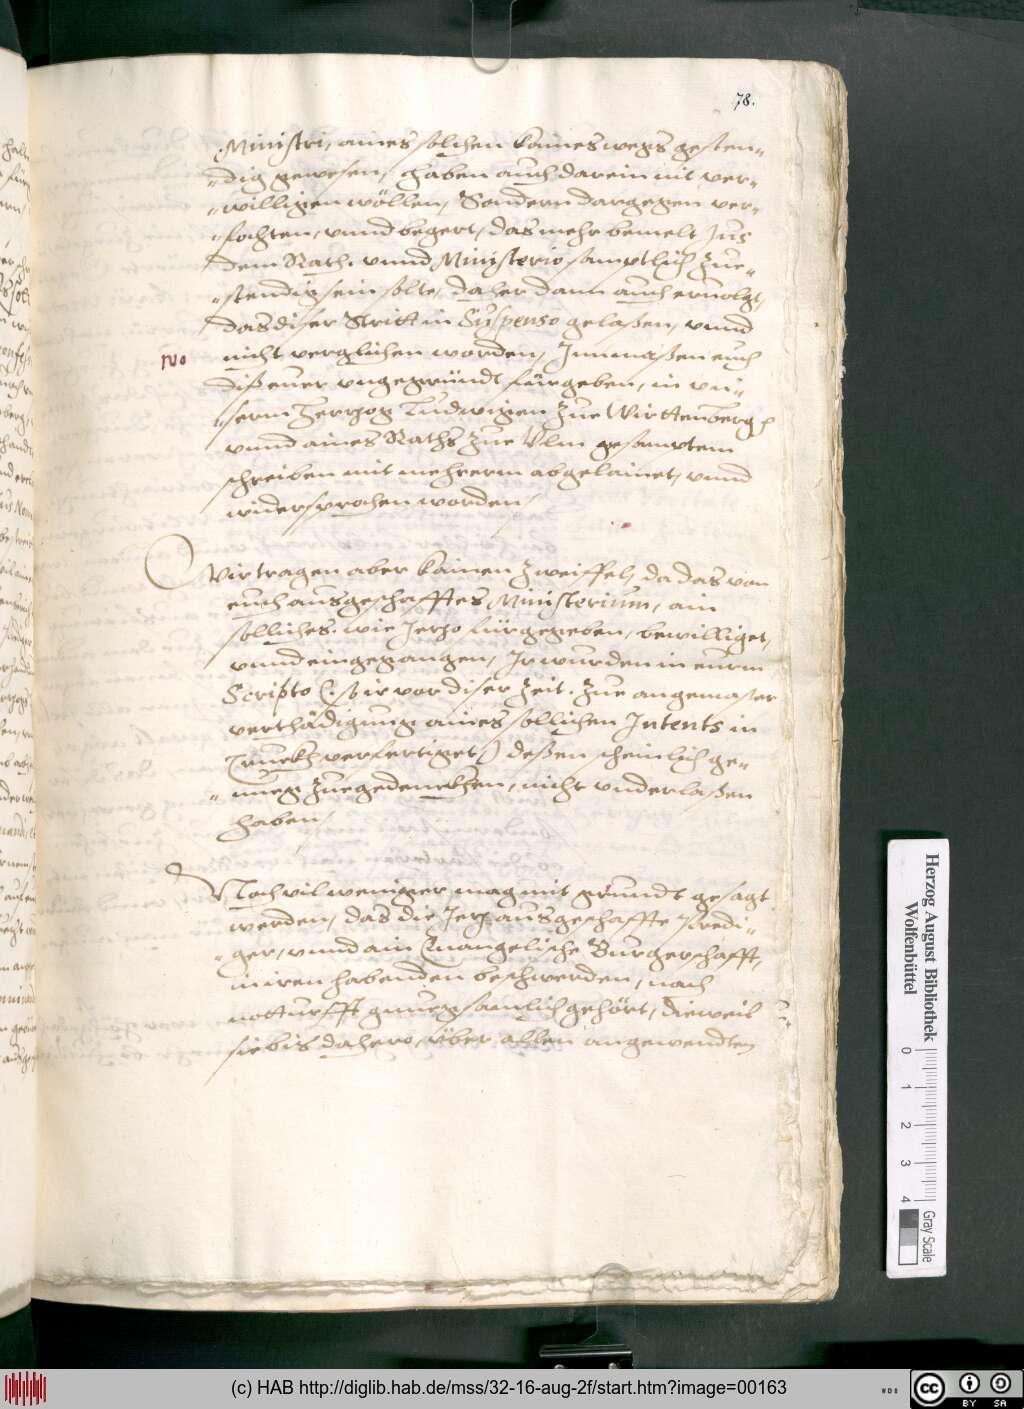 78.
Ministri, aines solchen kaineswegs gesten„
„dig gewesen, haben auch darein nit ver„
„willigen wöllen, Sondern dargegen ver„
„fochten, vnnd begert, das mehr bemelt Jus
dem Rath. vnnd Ministerio samptlich zue„
„stendig sein solte, daher dann auch eruolgt,
das diser Stritt in Suspenso gelaßen, vnnd
nicht verglichen worden, Jnmaßen euch
No
diß euer vngegründt fürgeben, in vn„
„serm Hertzog Ludwigen zue Wirttemberg
vnnd aines Raths zue Vlm gesamptem
schreiben mit mehrerm abgelainet, vnnd
widersprochen worden,
Wir tragen aber kainen zweiffel, da das von
euch ausgeschafftes Ministerium, ain
solliches. wie Jetzo fürgegeben, bewilliget,
vnnd eingegangen, Jr wurden in eurm
Scripto (: so ir vor diser Zeit. zue angemaster
verthädigung aines sollichen Intents in
Truckh verfertiget) deßen scheinlich ge„
„nueg zuegedenckhen, nicht vnderlaßen
haben,
Noch vil weniger mag mit grundt gesagt
werden, das die Jetz ausgeschaffte Predi„
„ger, vnnd ain Euangelische Burgerschafft,
in iren habenden beschwerden, nach
notturfft gnuegsamlich gehört, dieweil
sie bis dahero, über allen angewendten
Herzog August Bibliothek
Wolfenbüttel
0 1 2 3 4
Gray Scale
(c) HAB http://diglib.hab.de/mss/32-16-aug-2f/start.htm?image=00163
WDB
cc BY SA